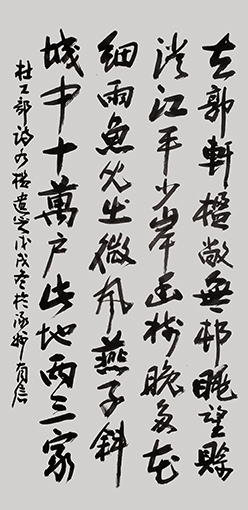 去郭軒楹敞無邨眺望賒
澄江平少岸幽樹晚多花
細雨魚兒出微風燕子斜
城中十萬户此地兩三家
杜工部詩水檻遣心戊戌冬於涿州